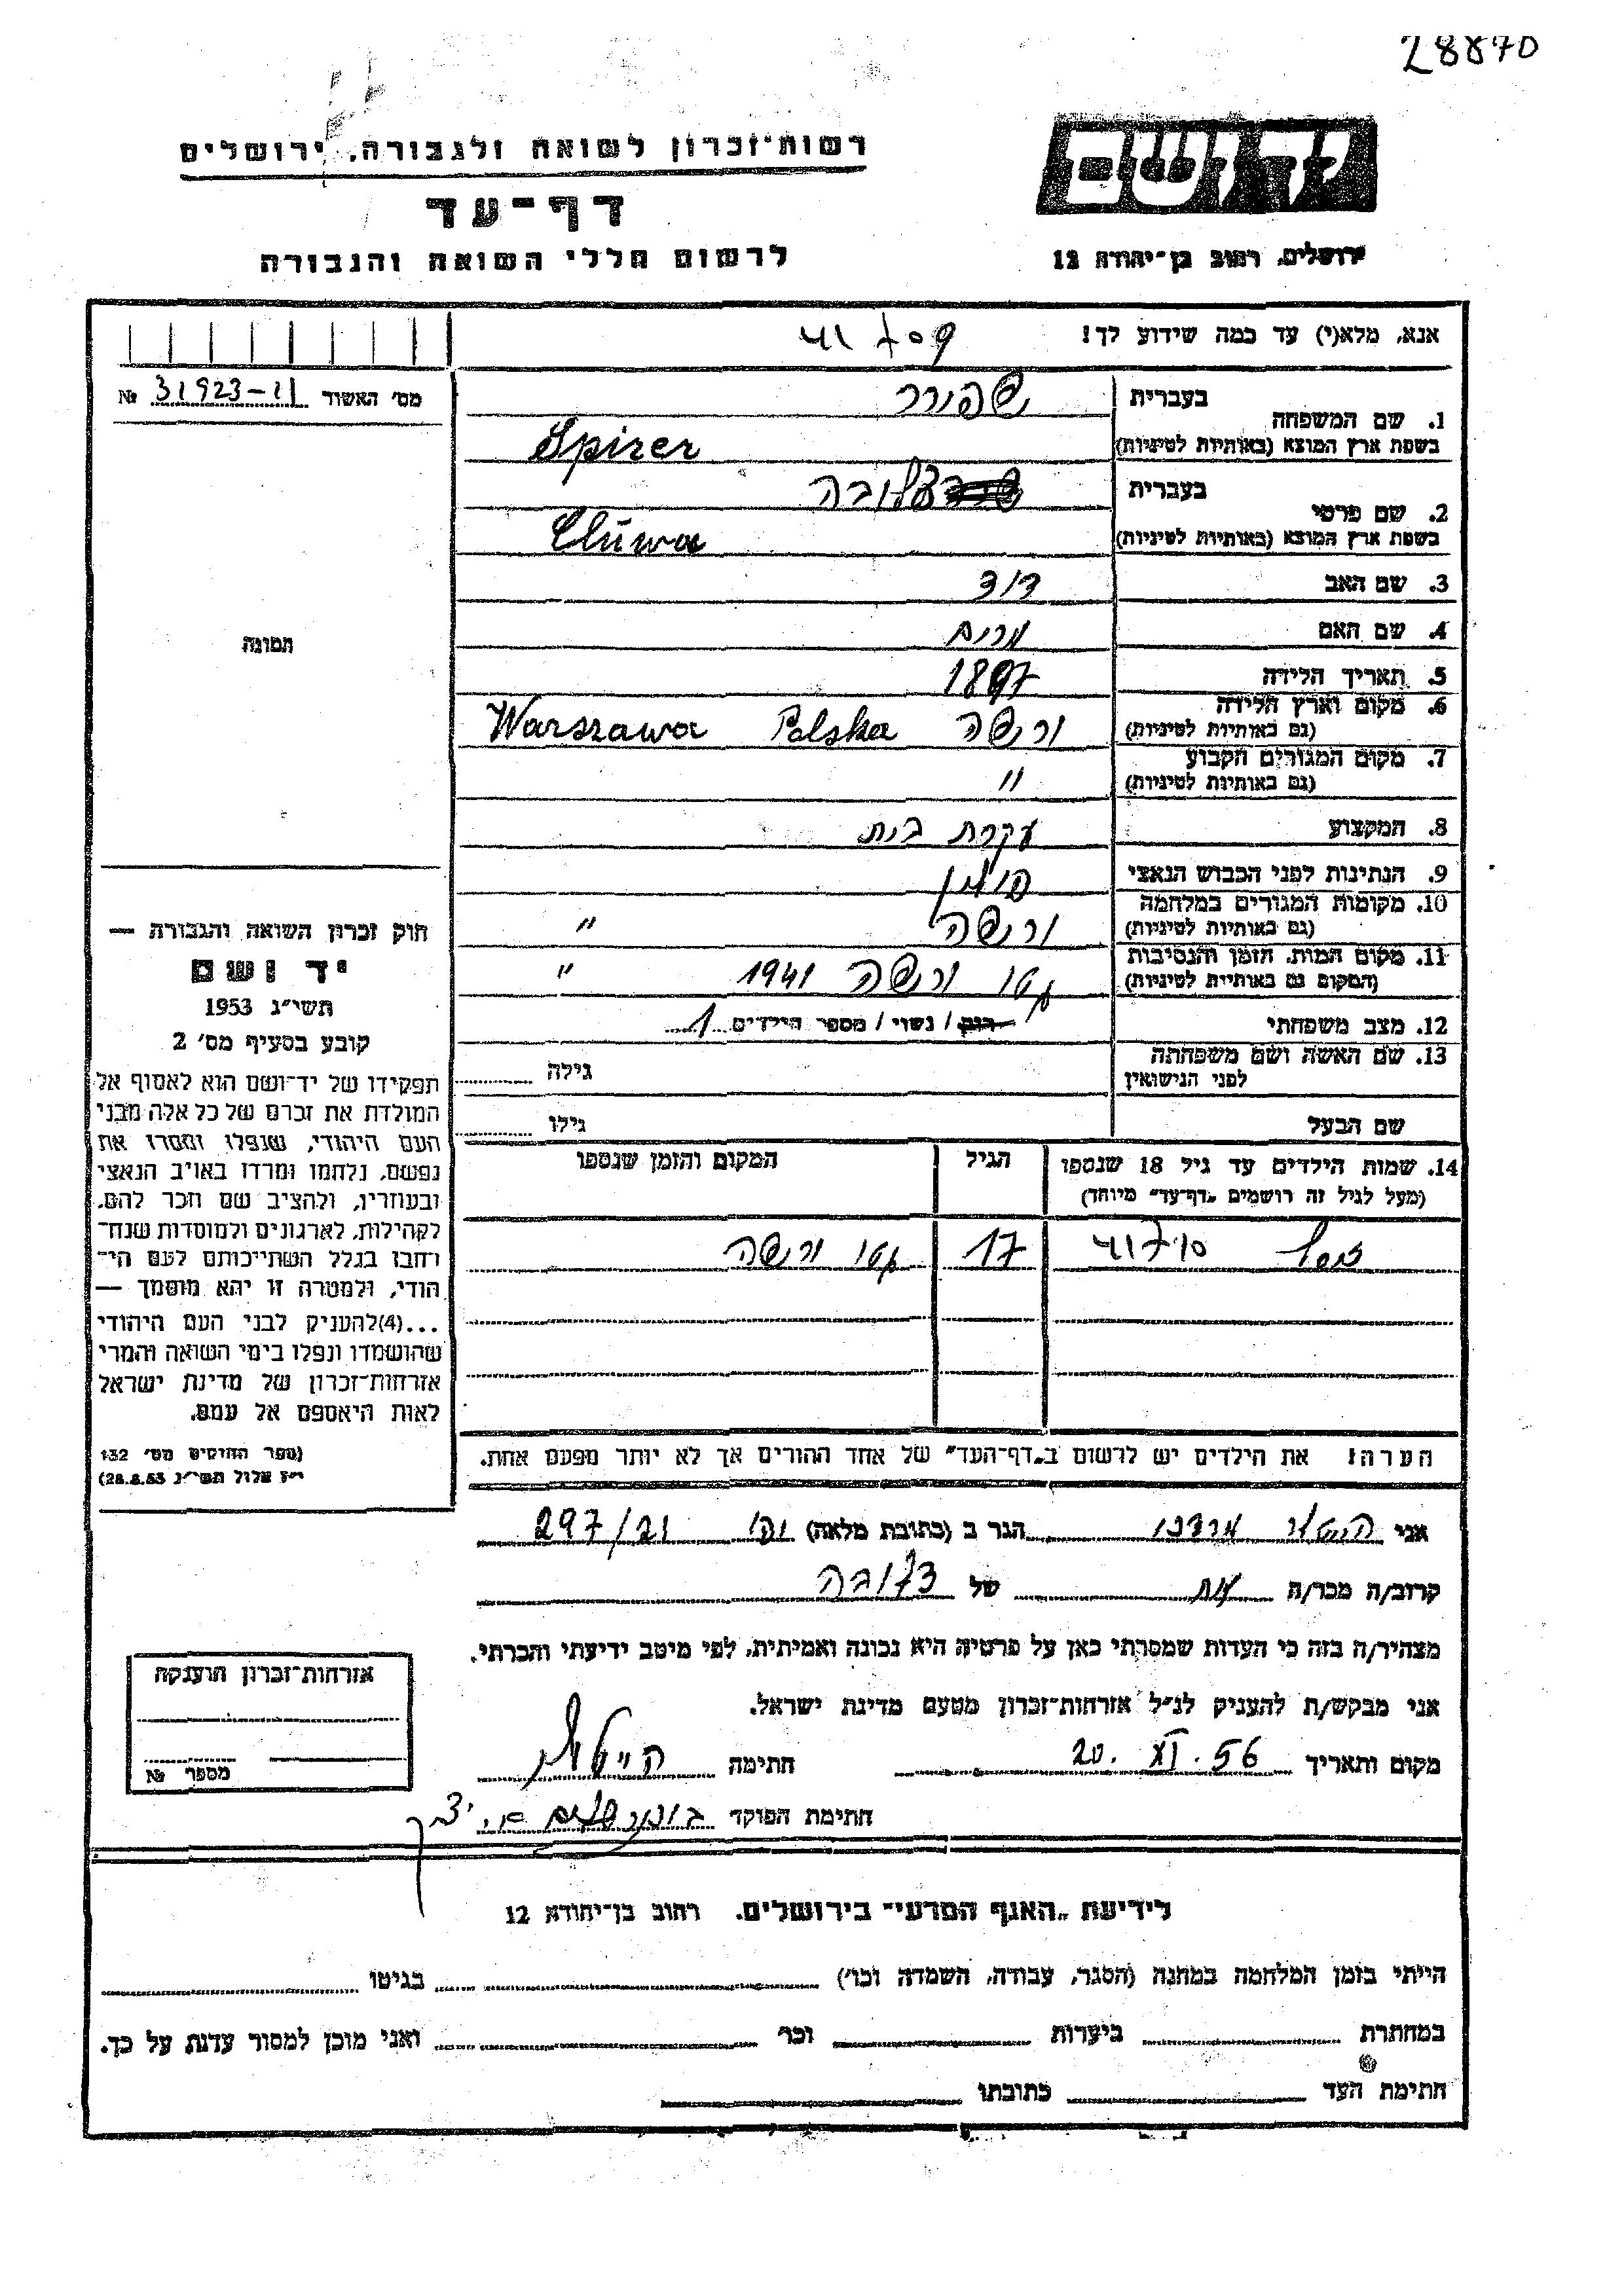 28870
יד ושם
רשות־זכרון לשואה ולגבורה, ירושלים
דף־עד
לרשום חללי השואה והגבורה
ירושלים, רחוב בן־יהודה 12
אנא, מלא(י) עד כמה שידוע לך!
41709
מס׳ האשור 31923-11 №
1. שם המשפחה
בעברית שפירר
בשפת ארץ המוצא (באותיות לטיניות) Spirer
2. שם פרטי
בעברית
בשפת ארץ המוצא (באותיות לטיניות)
3. שם האב דוד
4. שם האם מרים
5. תאריך הלידה 1897
6. מקום וארץ הלידה
(גם באותיות לטיניות) ורשה Polska Warszawa
7. מקום המגורים הקבוע
(גם באותיות לטיניות) "
8. המקצוע עקרת בית
9. הנתינות לפני הכבוש הנאצי פולין
10. מקומות המגורים במלחמה
(גם באותיות לטיניות) ורשה "
11. מקום המות, הזמן והנסיבות
(המקום גם באותיות לטיניות) גטו ורשה 1941 "
12. מצב משפחתי רווק / נשוי / מספר הילדים 1
13. שם האשה ושם משפחתה
לפני הנישואין
גילה
שם הבעל
גילו
14. שמות הילדים עד גיל 18 שנספו
(מעל לגיל זה רושמים „דף־עד" מיוחד)
הגיל
המקום והזמן שנספו
41710
17
גטו ורשה
הערה: את הילדים יש לרשום ב„דף־העד" של אחד ההורים אך לא יותר מפעם אחת.
תמונה
חוק זכרון השואה והגבורה —
יד ושם
תשי״ג 1953
קובע בסעיף מס׳ 2
תפקידו של יד־ושם הוא לאסוף אל
המולדת את זכרם של כל אלה מבני
העם היהודי, שנפלו ומסרו את
נפשם, נלחמו ומרדו באויב הנאצי
ובעוזריו, ולהציב שם וזכר להם,
לקהילות, לארגונים ולמוסדות שנח־
רחבו בגלל השתייכותם לעם הי־
הודי, ולמטרה זו יהא מוסמך —
...(4)להעניק לבני העם היהודי
שהושמדו ונפלו בימי השואה והמרי
אזרחות־זכרון של מדינת ישראל
לאות היאספם אל עמם.
(ספר החוקים מס׳ 132
י״ז אלול תשי״ג 28.8.53)
אני מרדכי הגר ב (כתובת מלאה) 297/21
קרוב/ה מכר/ה של
מצהיר/ה בזה כי העדות שמסרתי כאן על פרטיה היא נכונה ואמיתית, לפי מיטב ידיעתי והכרתי.
אני מבקש/ת להעניק לנ״ל אזרחות־זכרון מטעם מדינת ישראל.
מקום ותאריך 20. XI. 56 חתימה
חתימת הפוקד
אזרחות־זכרון הוענקה
מספר №
לידיעת „האגף המדעי" בירושלים, רחוב בן־יהודה 12
הייתי בזמן המלחמה במחנה (הסגר, עבודה, השמדה וכו׳) בגיטו
במחתרת ביערות וכו׳ ואני מוכן למסור עדות על כך.
חתימת העד כתובתו